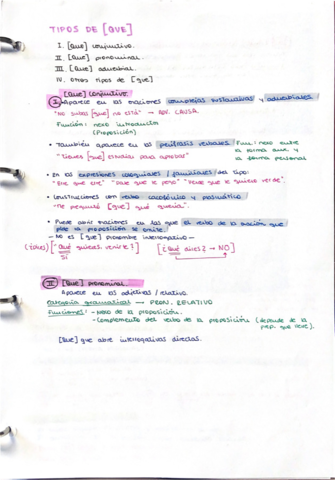 TIPOS DE [QUE]
I. [Que] conjuntivo.
II. [Que] pronominal.
III. [Que] adverbial.
IV. Otros tipos de [que]
I [Que] conjuntivo.
Aparece en las oraciones complejas sustantivas y adverbiales.
"No sabes [que] no está" → ADV. CAUSA.
Función: nexo introductor
(Proposición)
• También aparece en las perífrasis verbales. Func: nexo entre
"Tienes [que] estudiar para aprobar" la forma aux. y
la forma personal
• En las expresiones coloquiales / familiares del tipo:
"Erre que erre" "Dale que te pego" "Verde que te quiero verde".
• Construcciones con verbo
"Me preguntó [que] qué quería".
• Puede abrir oraciones en las que el verbo de la oración que
pide la proposición se omite.
- No es [que] pronombre interrogativo -
"Qué quieres, venirte?] [¿Qué dices? → NO]
Sí
II [Que] pronominal.
Aparece en las adjetivas / relativo.
Categoría gramatical → PRON. RELATIVO
Funciones: - Nexo de la proposición.
- Complemento del verbo de la proposición (depende de la
prep. que lleve).
[Que] que abre interrogativas directas.